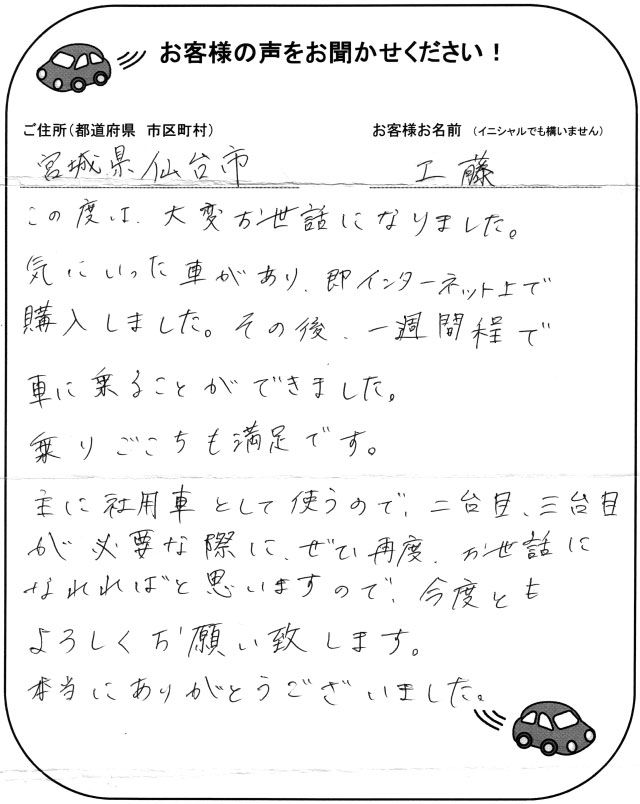 お客様の声をお聞かせください！
ご住所（都道府県　市区町村）
お客様お名前（イニシャルでも構いません）
宮城県仙台市
工藤
この度は、大変お世話になりました。
気にいった車があり、即インターネット上で
購入しました。その後、一週間程で
車に乗ることができました。
乗りごこちも満足です。
主に社用車として使うので、二台目、三台目
が必要な際に、ぜひ再度、お世話に
なれればと思いますので、今度とも
よろしくお願い致します。
本当にありがとうございました。